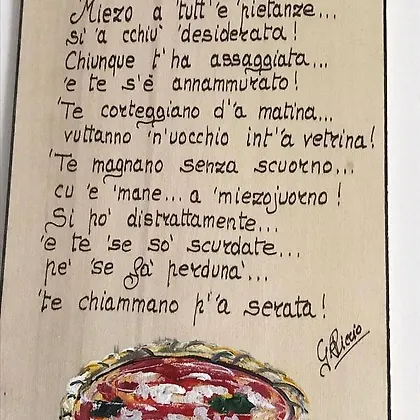 Miezo a 'tutt' 'e 'pietanze...
si' 'a cchiu' 'desiderata!
Chiunque t' ha assaggiata...
'e te s'è annammurato!
'Te corteggiano d' 'a matina...
vuttanno 'n'uocchio int' 'a vetrina!
'Te magnano senza scuorno...
cu 'e 'mane... a 'miezojuorno!
Si po' distrattamente...
'e te 'se so' scurdate...
pe' 'se fa' perduna'...
'te chiammano p' 'a serata!